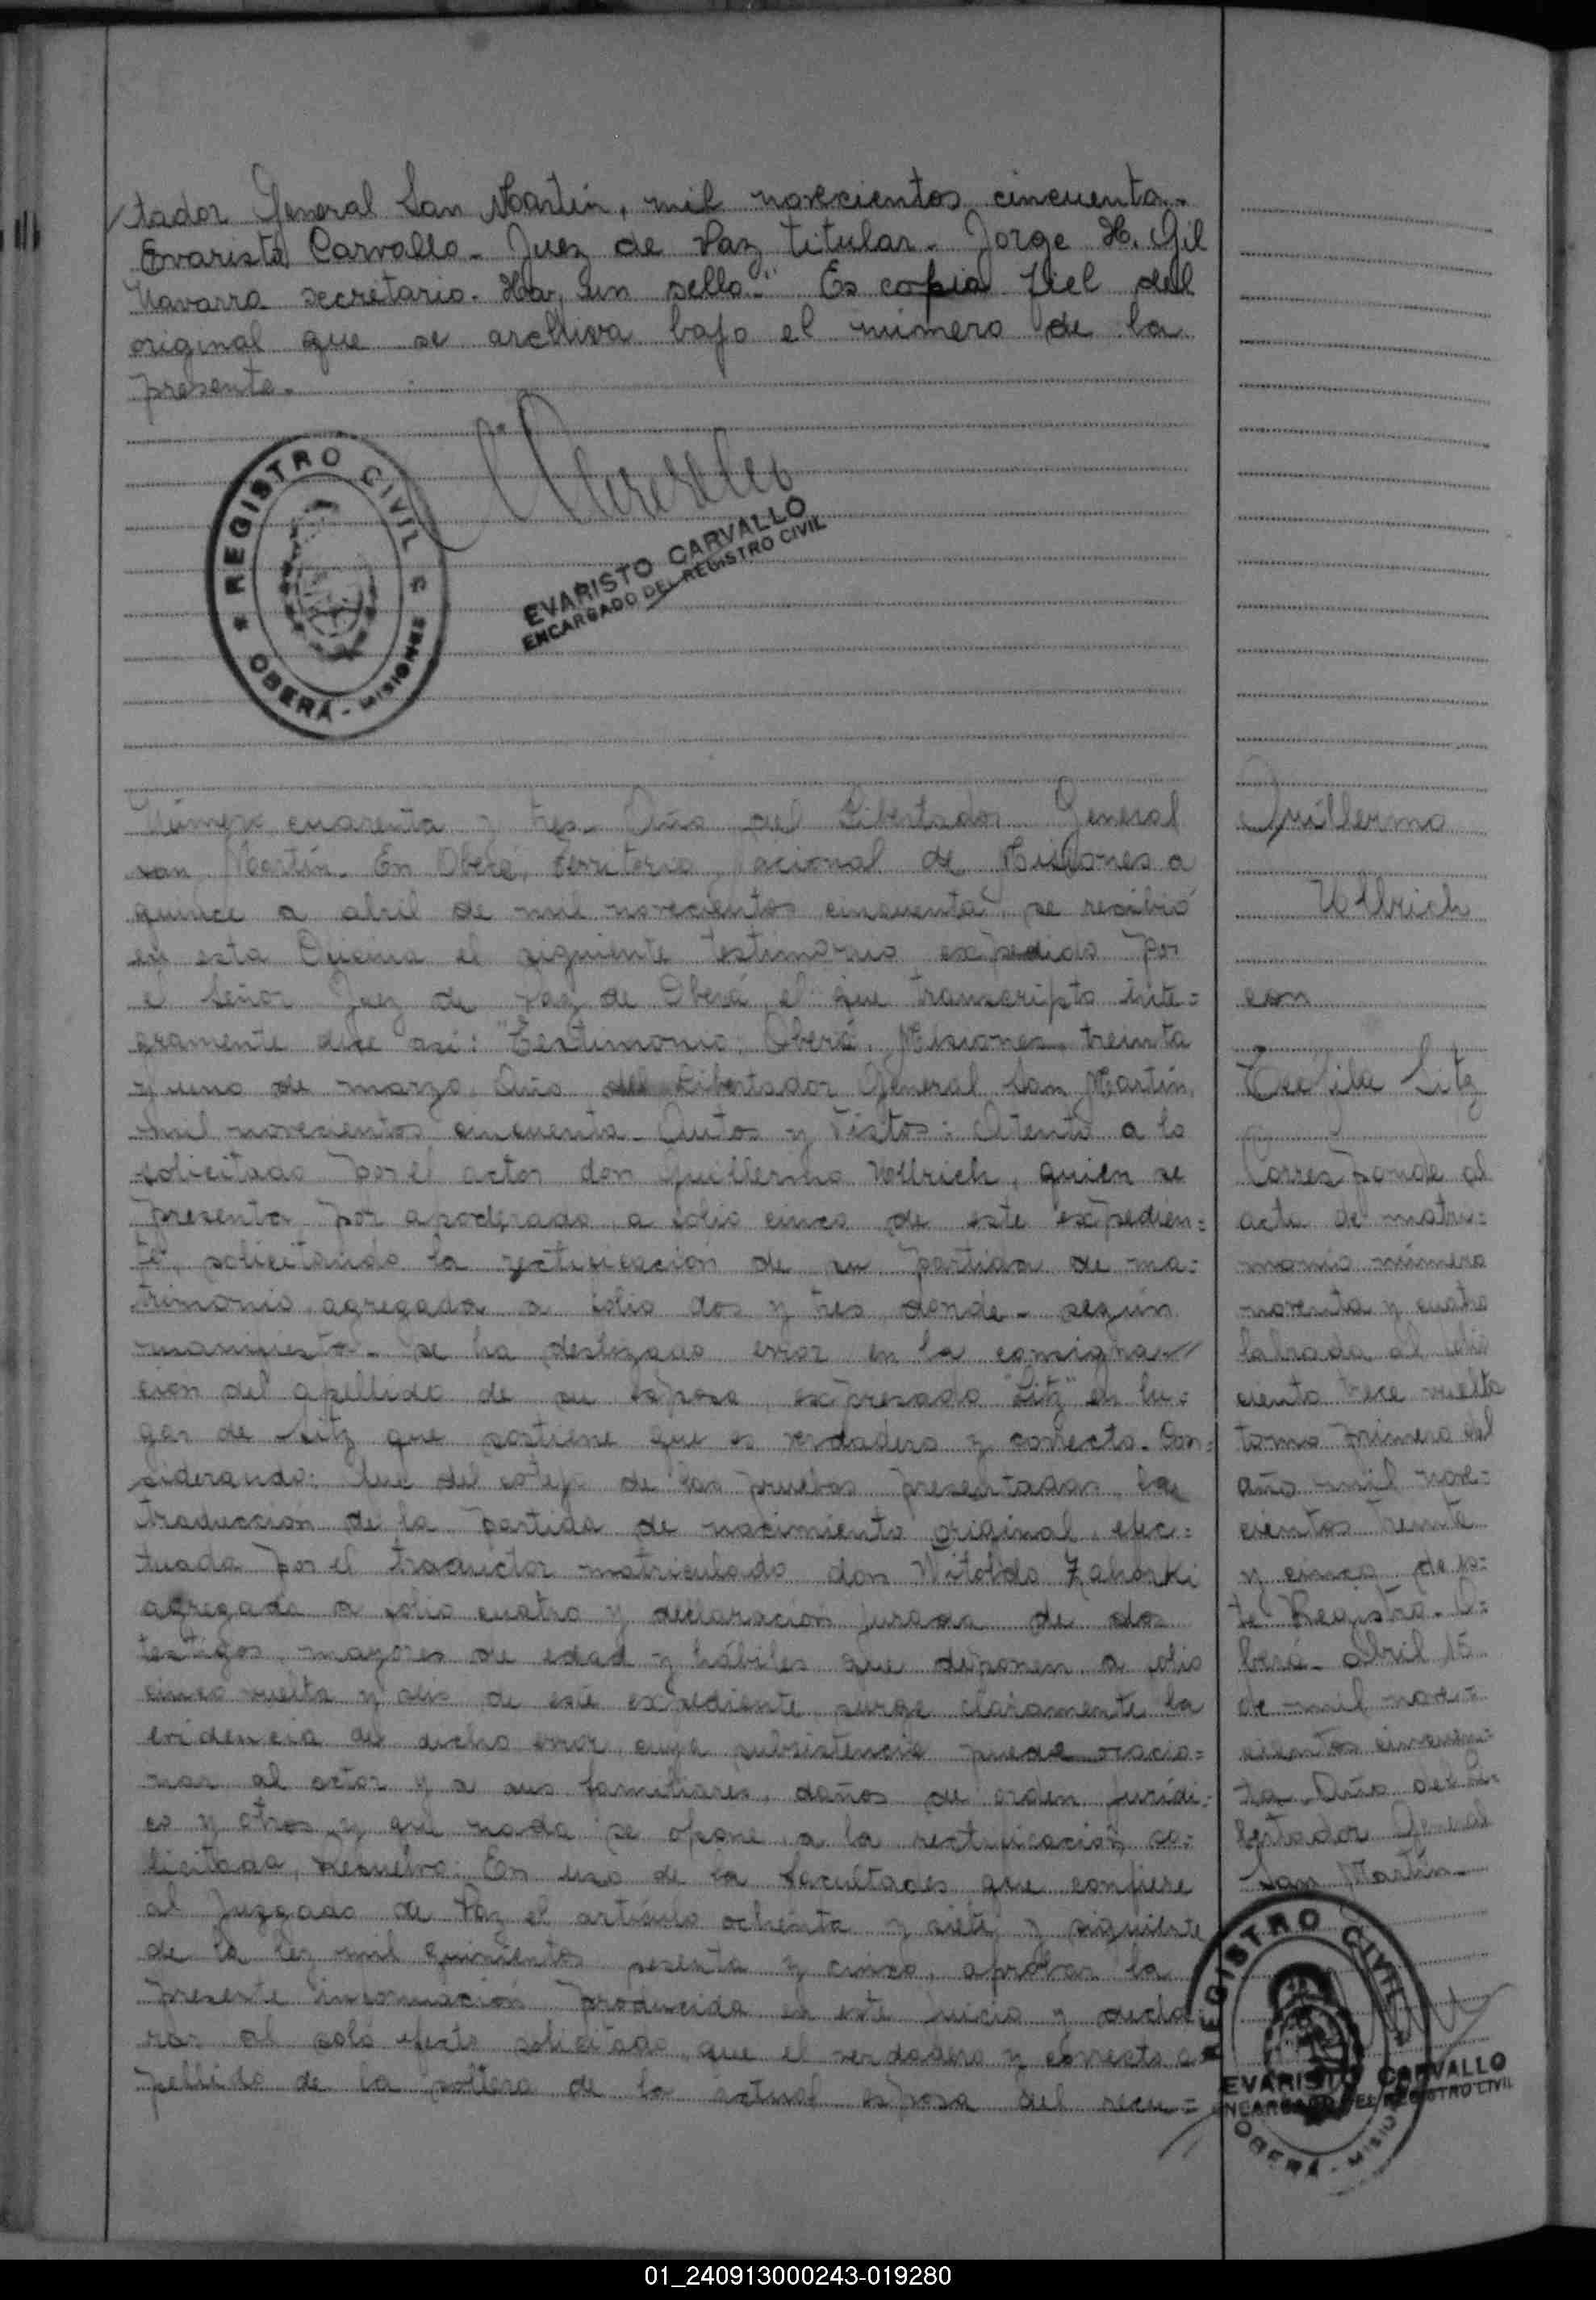 tador General San Martín, mil novecientos cincuenta.
Evaristo Carvallo. Juez de Paz titular. Jorge H. Gil
Navarra secretario. Hay un sello." Es copia fiel del
original que se archiva bajo el número de la
presente.
REGISTRO CIVIL
OBERÁ - MISIONES
EVARISTO CARVALLO
ENCARGADO DEL REGISTRO CIVIL
Número cuarenta y tres. Año del Libertador General
san Martín. En Oberá, Territorio Nacional de Misiones a
quince a abril de mil novecientos cincuenta, se recibió
en esta Oficina el siguiente testimonio expedido por
el Señor Juez de Paz de Oberá, el que transcripto inte=
gramente dice así: "Testimonio. Oberá, Misiones, treinta
y uno de marzo. Año del Libertador General San Martín,
mil novecientos cincuenta. Autos y Vistos: Atento a lo
solicitado por el actor don Guillermo Vollrich, quien se
presenta por apoderado a folio cinco de este expedien=
te, solicitando la rectificación de su partida de ma=
trimonio agregada a folio dos y tres, donde - según
manifiesta - se ha deslizado error en la consigna-
ción del apellido de su esposa, expresado "Litz" en lu=
gar de que sostiene que es verdadero y correcto. Con=
siderando: Que del cotejo de las pruebas presentadas, la
traducción de la partida de nacimiento original, efec=
tuada por el traductor matriculado don Witoldo Zahorki
agregada a folio cuatro y declaración jurada de dos
testigos, mayores de edad y hábiles que deponen a folio
cinco vuelta y seis de este expediente, surge claramente la
evidencia de dicho error, cuya subsistencia puede ocacio=
nar al actor y a sus familiares, daños de orden jurídi=
co y otros y que nada se opone a la rectificación so=
licitada, Resuelvo: En uso de la facultades que confiere
al Juzgado de Paz el artículo ochenta y siete y siguiente
de la ley mil quinientos sesenta y cinco, aprobar la
presente información producida en este juicio y decla=
rar al solo efecto solicitado, que el verdadero y correcto a=
pellido de la soltera de la actual esposa del recu=
Guillermo
Vollrich
con
Teofila Litz
Corresponde al
acta de matri=
monio número
noventa y cuatro
labrada al folio
ciento trece vuelta
tomo primero del
año mil nove=
cientos treinta
y cinco de es=
te Registro. O=
berá. Abril 15
de mil nove=
cientos cincuen=
ta. Año del Li=
bertador General
San Martín.
REGISTRO CIVIL
EVARISTO CARVALLO
ENCARGADO DEL REGISTRO CIVIL
OBERÁ - MISIO
01_240913000243-019280